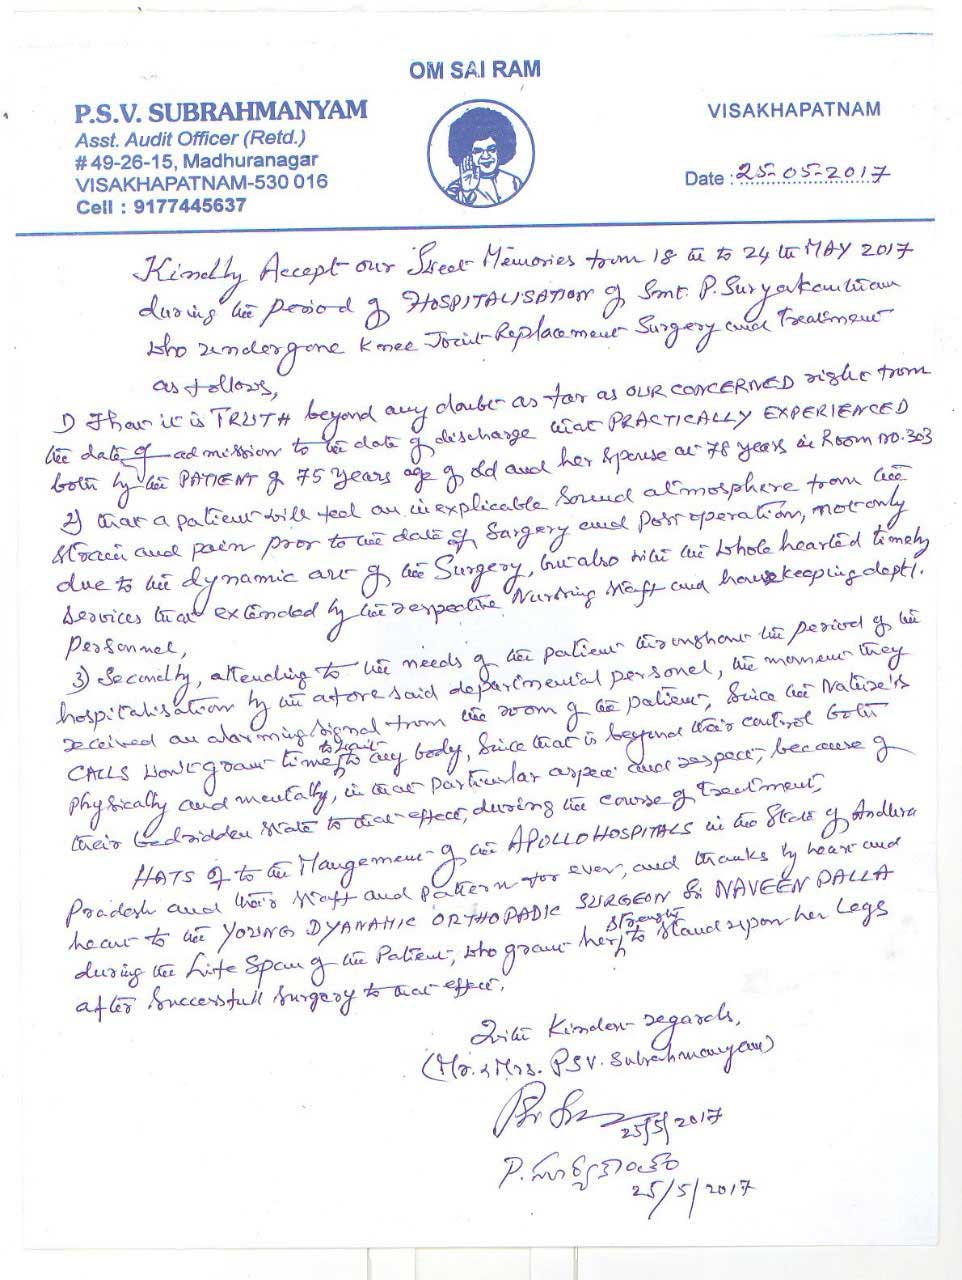 OM SAI RAM
P.S.V. SUBRAHMANYAM
Asst. Audit Officer (Retd.)
# 49-26-15, Madhuranagar
VISAKHAPATNAM-530 016
Cell : 9177445637
VISAKHAPATNAM
Date : 25-05-2017
Kindly Accept our Sweet Memories from 18 th to 24 th MAY 2017
during the period of HOSPITALISATION of Smt. P. Suryakantham
who undergone Knee Joint Replacement Surgery and Treatment
as follows,
1) That it is TRUTH beyond any doubt as far as OUR CONCERNED right from
the date of admission to the date of discharge that PRACTICALLY EXPERIENCED
both by the PATIENT of 75 years age of old and her spouse at 78 years in Room no. 303
2) that a patient will feel an inexplicable Sound atmosphere from the
strain and pain prior to the date of Surgery and Post operation, not only
due to the dynamic art of the Surgery, but also with the whole hearted timely
services that extended by the respective Nursing staff and housekeeping deptl.
Personnel,
3) Secondly, attending to the needs of the patient throughout the period of the
hospitalisation by the aforesaid departmental personel, the moment they
received an alarming signal from the room of the patient, Since the Nature's
CALLS won't grant time to wait to any body, Since that is beyond their control both
physically and mentally, in that particular aspect and respect, because of
their bedridden state to that effect, during the course of treatment,
HATS of to the Mangement of the APOLLO HOSPITALS in the State of Andhra
Pradesh and their staff and pattern for ever, and thanks by heart and
heart to the YOUNG DYANAMIC ORTHOPADIC SURGEON Sri NAVEEN PALLA
during the Life Span of the Patient, who grant her strength to stand upon her Legs
after Successfull Surgery to that effect.
With Kindest regards,
(Mr. & Mrs. PSV. Subrahmanyam)
25/5/2017
P. సూర్యకాంతం
25/5/2017